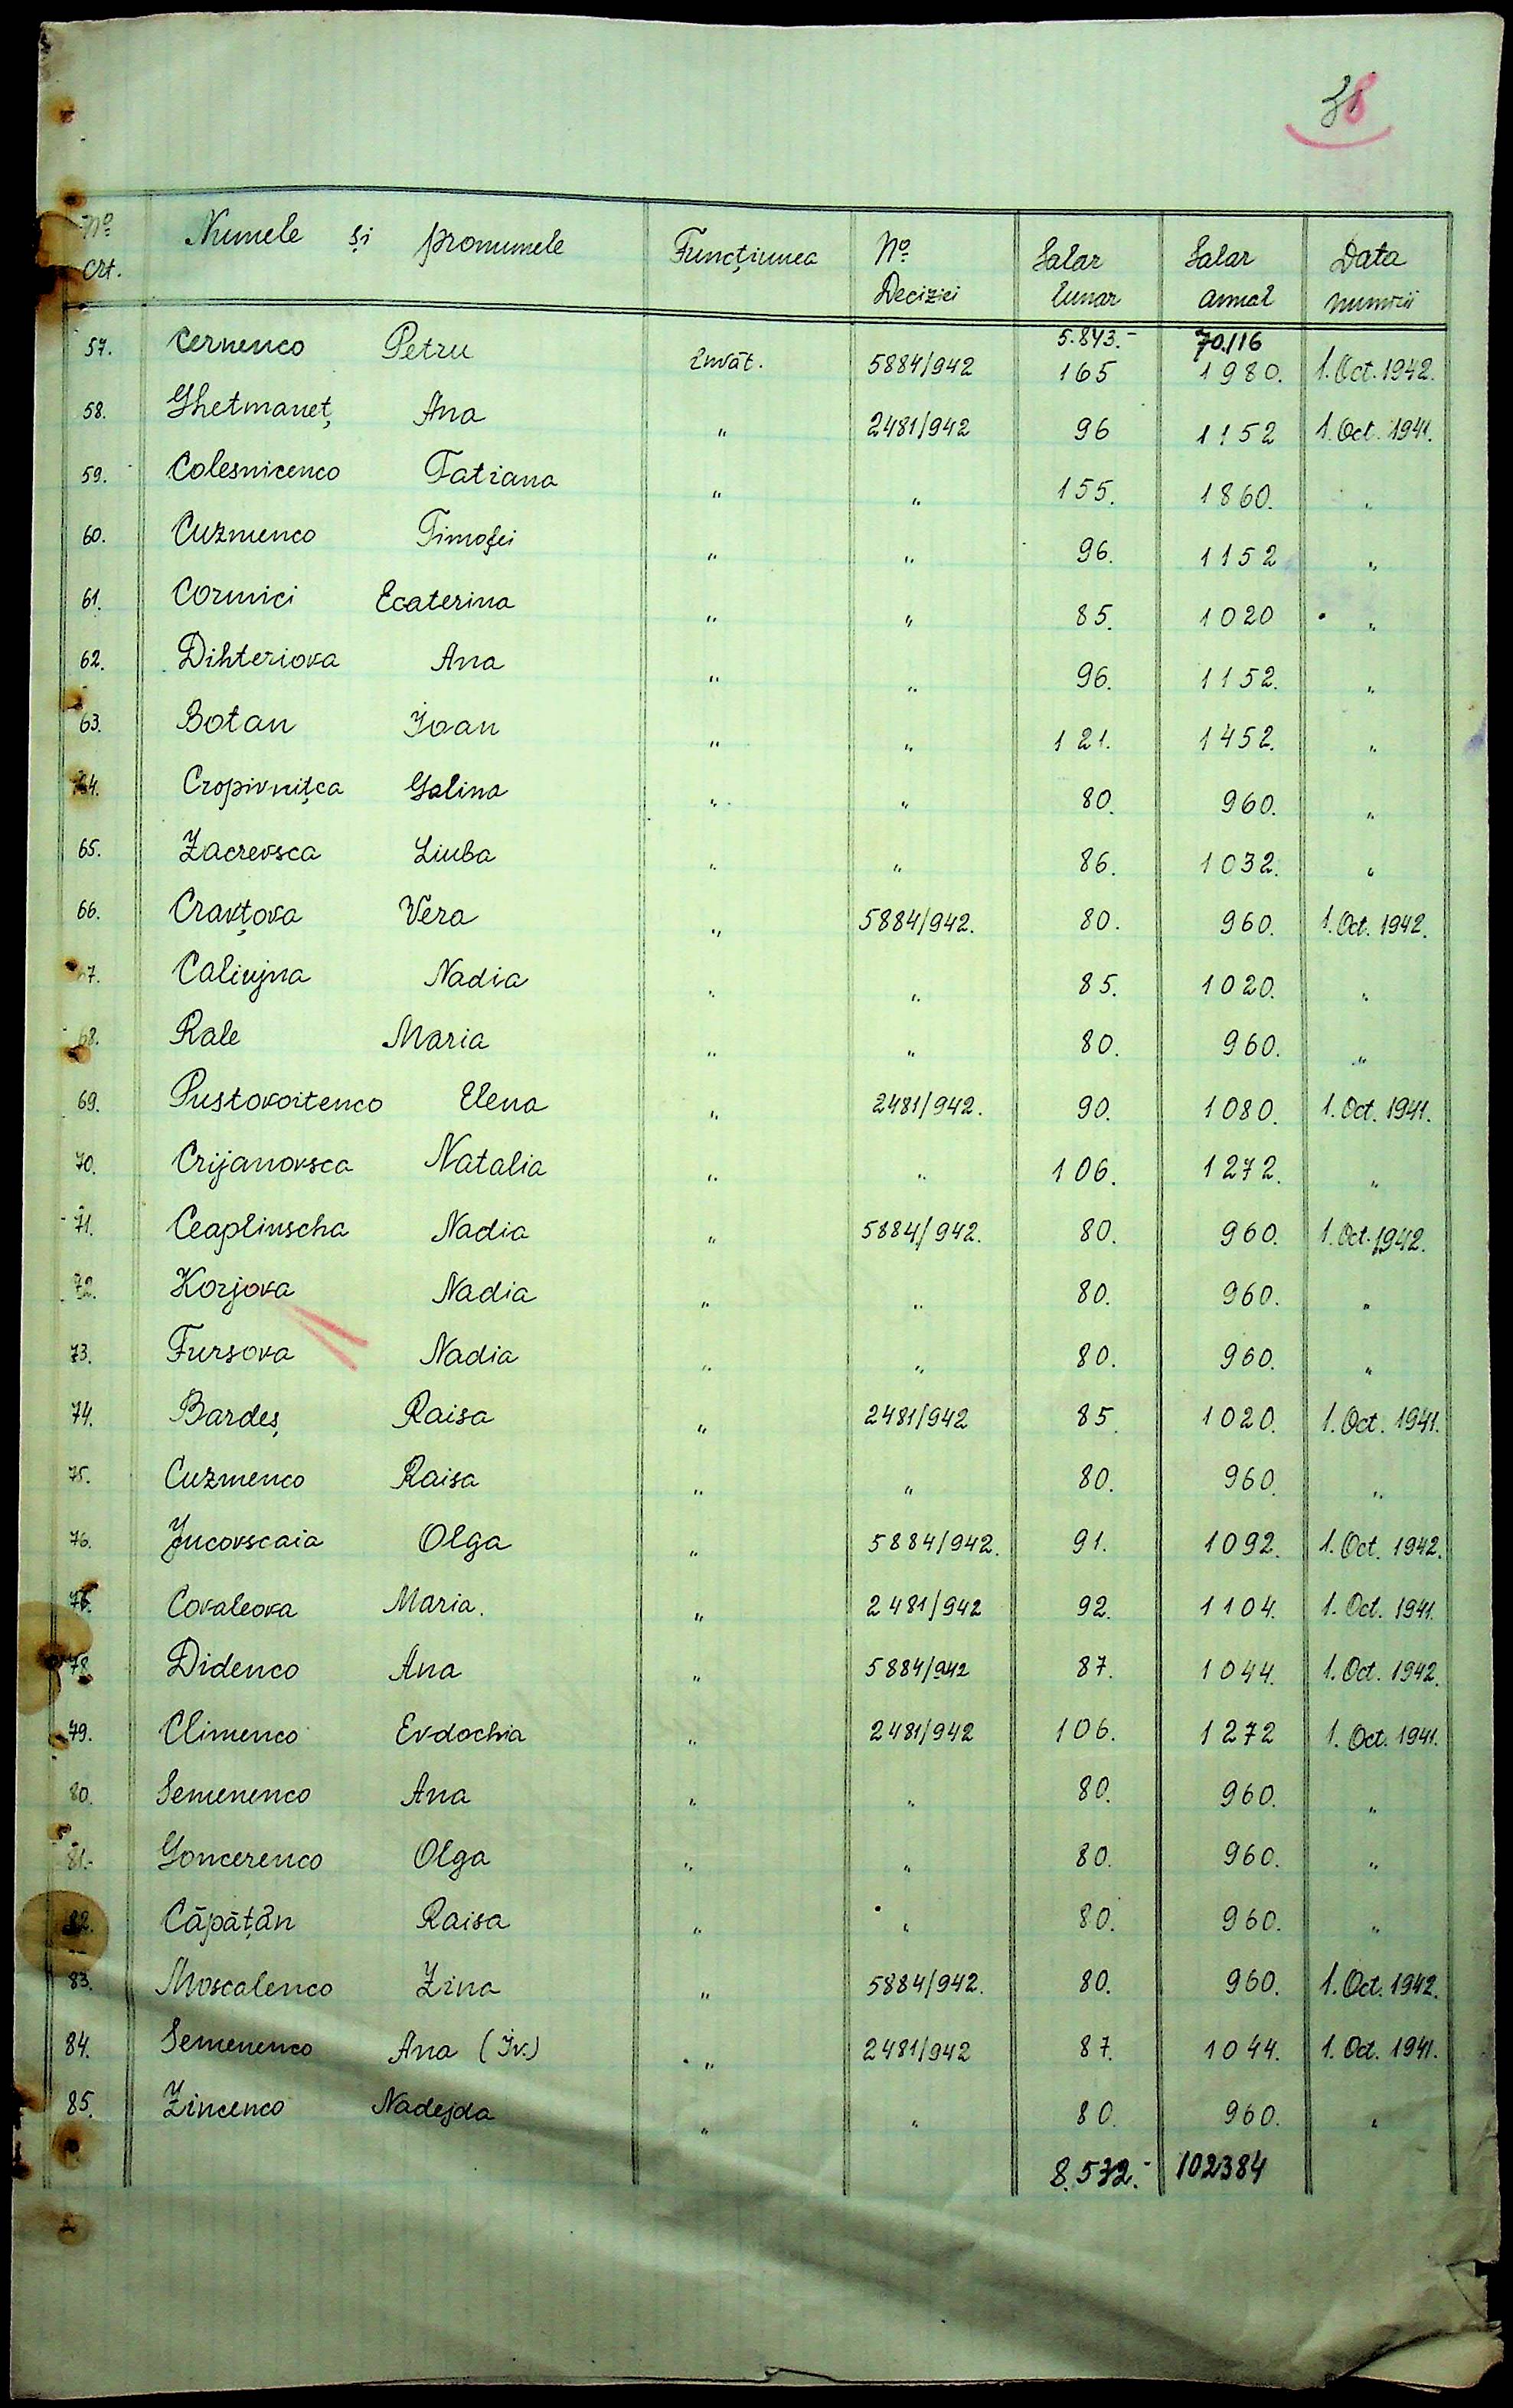 38
Nº Crt. Numele și pronumele Funcțiunea Nº Deciziei Salar lunar Salar anual Data numirii
5.843.- 70.116
57. Cernenco Petru Învăt. 5884/942 165 1980. 1. Oct. 1942.
58. Ghetmaneț Ana " 2481/942 96 1152 1. Oct. 1941.
59. Colesnicenco Tatiana " " 155. 1860. "
60. Cuzmenco Timofei " " 96. 1152 "
61. Cormici Ecaterina " " 85. 1020 "
62. Dihteriova Ana " " 96. 1152. "
63. Botan Ioan " " 121. 1452. "
64. Cropivnițca Galina " " 80. 960. "
65. Zacrevsca Liuba " " 86. 1032. "
66. Cravțova Vera " 5884/942. 80. 960. 1. Oct. 1942.
67. Caliujna Nadia " " 85. 1020. "
68. Rale Maria " " 80. 960. "
69. Pustovoitenco Elena " 2481/942. 90. 1080. 1. Oct. 1941.
70. Crijanovsca Natalia " " 106. 1272. "
71. Ceaplinscha Nadia " 5884/942. 80. 960. 1. Oct. 1942.
72. Korjova Nadia " " 80. 960. "
73. Fursova Nadia " " 80. 960. "
74. Bardeș Raisa " 2481/942 85 1020. 1. Oct. 1941.
75. Cuzmenco Raisa " " 80. 960. "
76. Jucovscaia Olga " 5884/942. 91. 1092. 1. Oct. 1942.
76. Covaleova Maria. " 2481/942 92. 1104. 1. Oct. 1941.
78. Didenco Ana " 5884/942 87. 1044. 1. Oct. 1942.
79. Climenco Evdochia " 2481/942 106. 1272 1. Oct. 1941.
80. Semenenco Ana " " 80. 960. "
81.- Goncerenco Olga " " 80. 960. "
82. Căpățân Raisa " " 80. 960. "
83. Moscalenco Zina " 5884/942. 80. 960. 1. Oct. 1942.
84. Semenenco Ana (Iv.) " 2481/942 87. 1044. 1. Oct. 1941.
85. Zincenco Nadejda " " 80. 960. "
8.532.- 102384